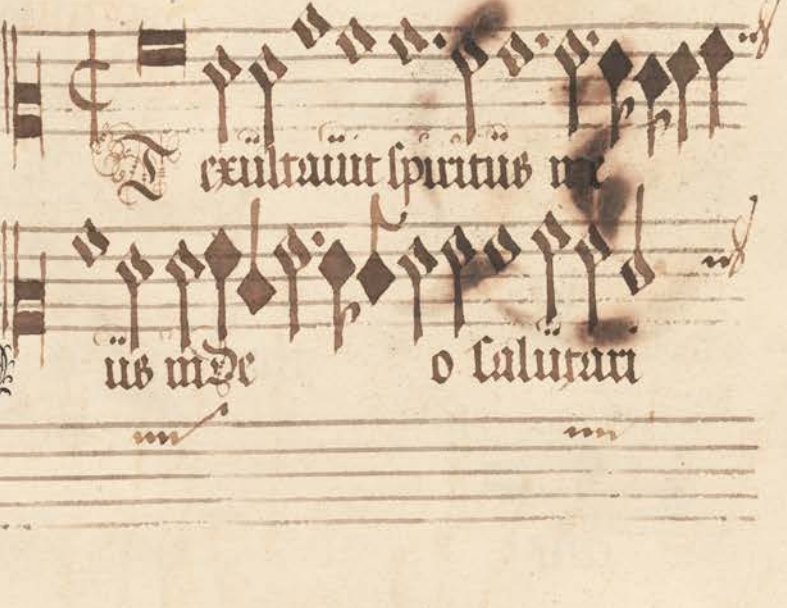 Et exültauit spiritüs me
üs in De o salütari